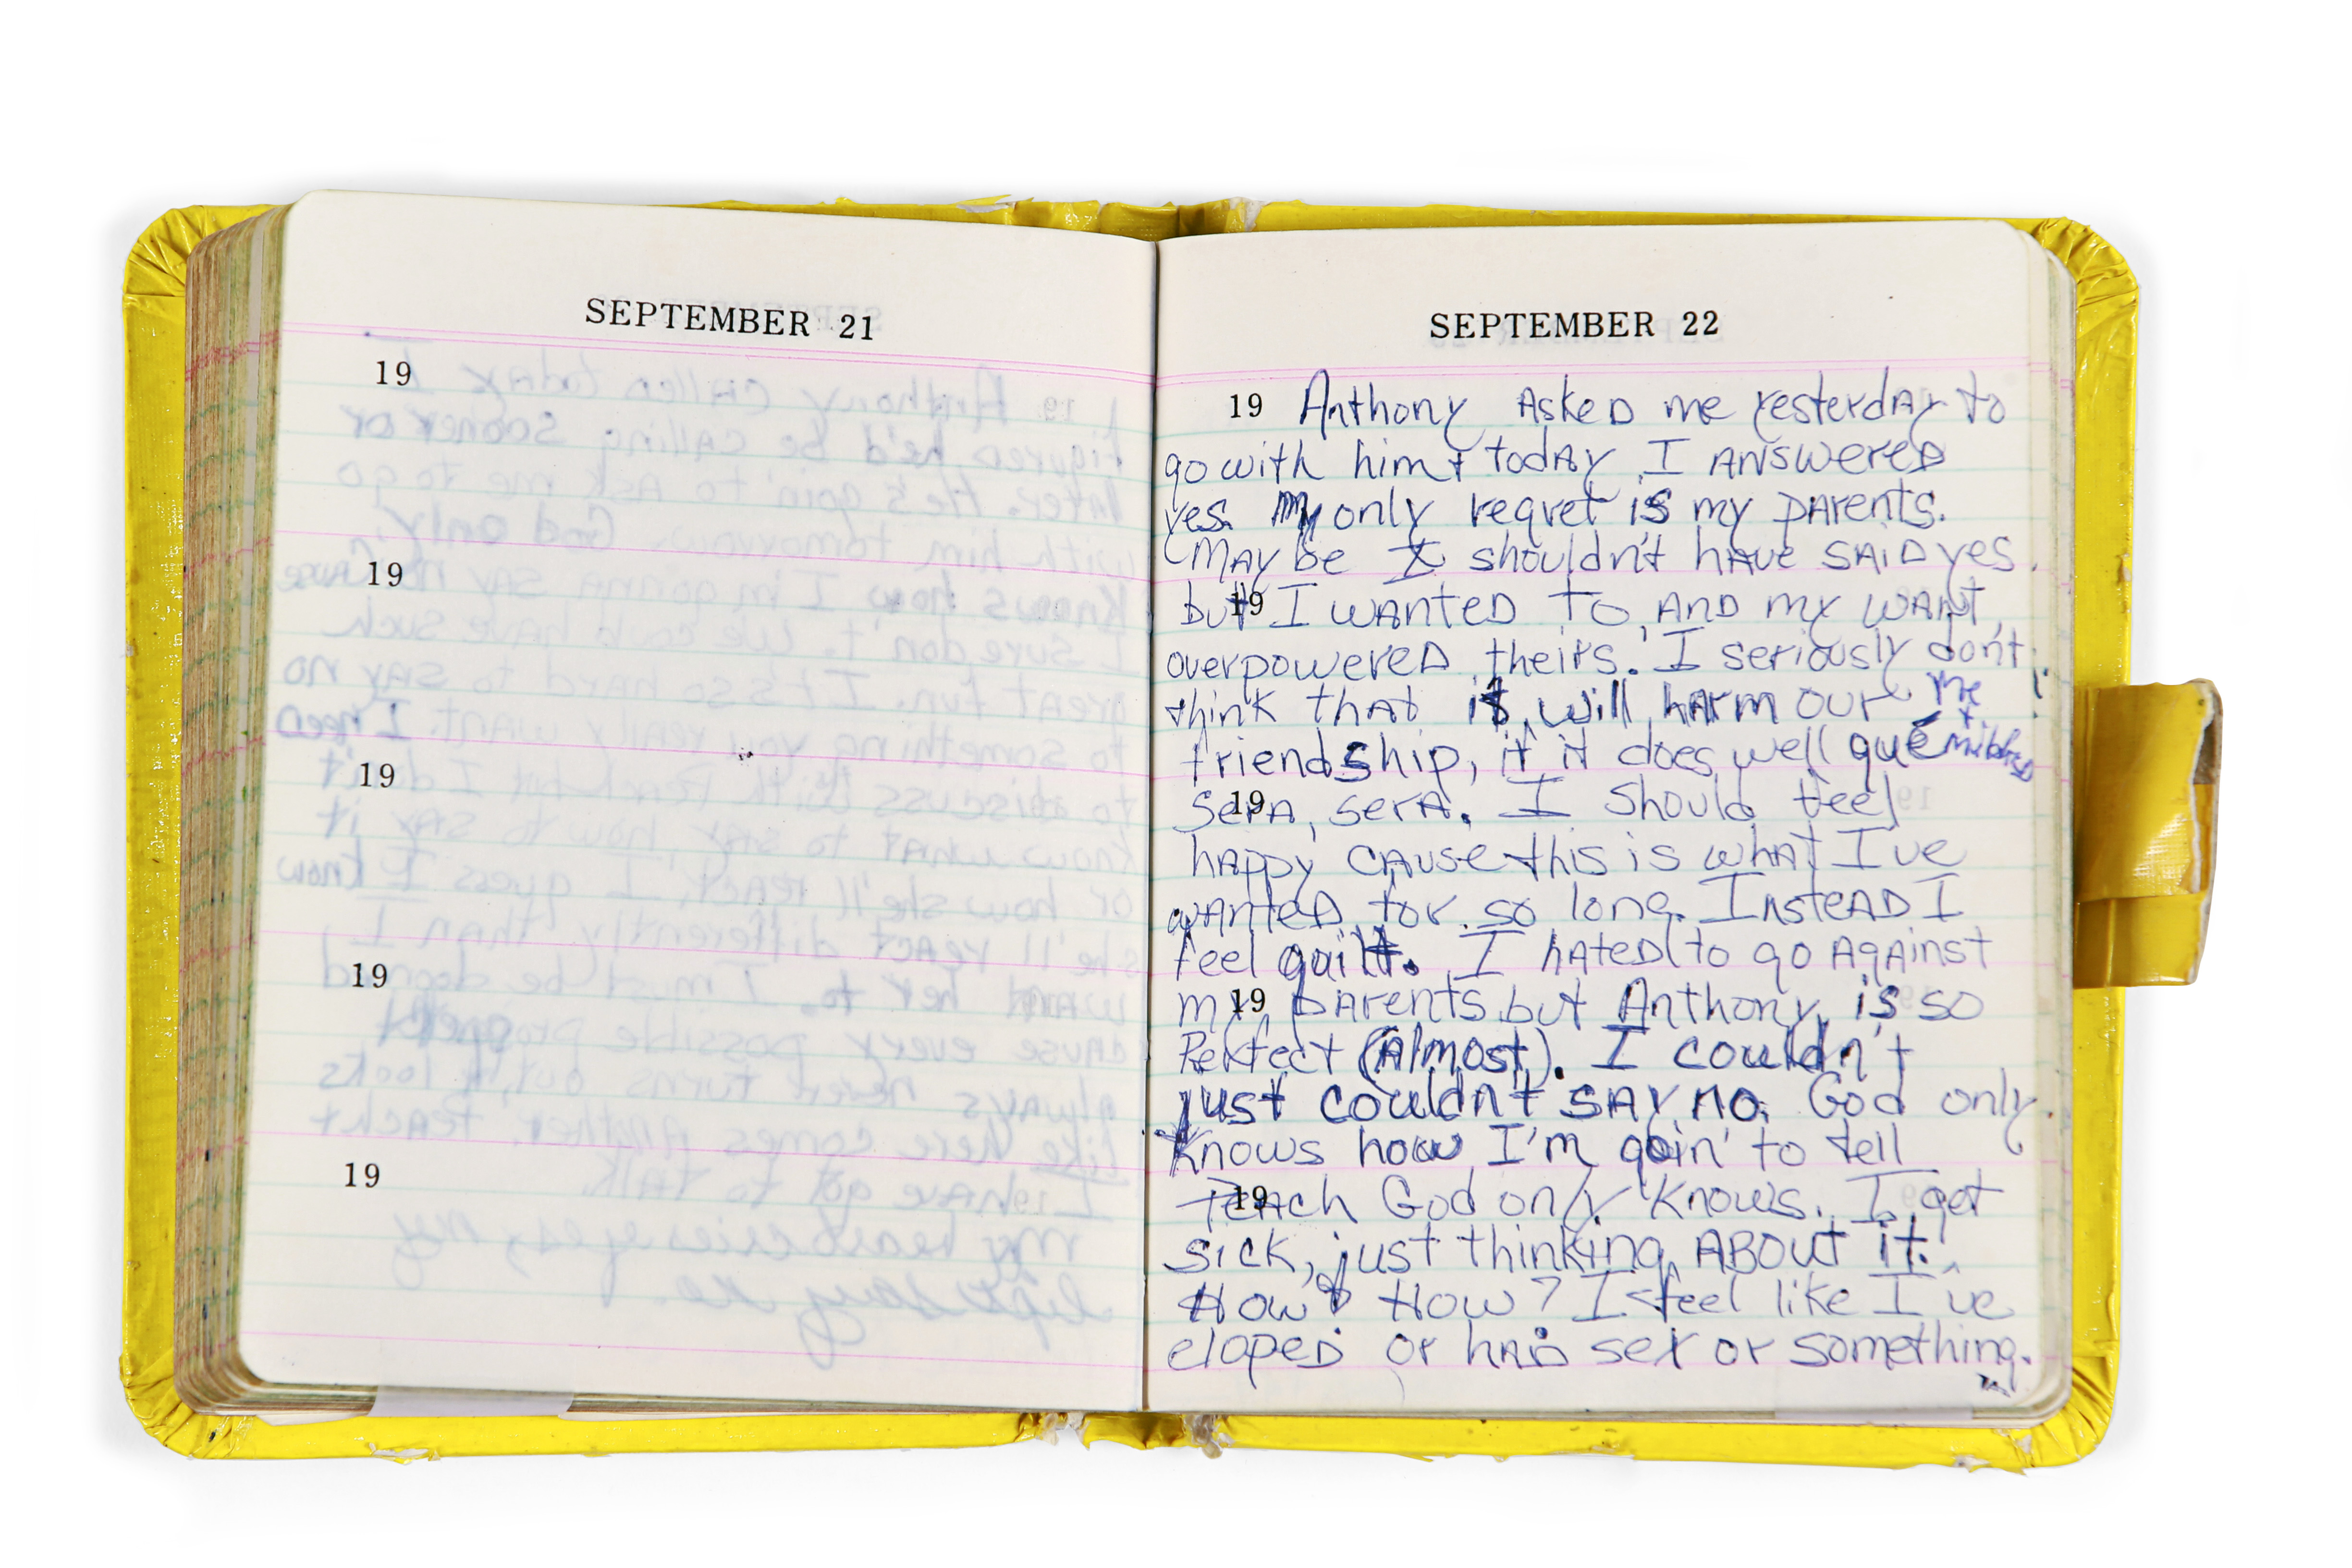 SEPTEMBER 21
19
19
19
19
19
SEPTEMBER 22
19 Anthony Asked me yesterday to
go with him + today I answered
yes. My only regret is my parents.
Maybe I shouldn't have said yes.
but 19 I wanted to, and my want
overpowered theirs. I seriously don't
think that it will harm our me +
friendship, if it does well qué
sera, 19 sera. I should feel
happy cause this is what I've
wanted for so long. Instead I
feel guilt. I hated to go against
my 19 parents but Anthony is so
Perfect (Almost). I couldn't
just couldn't say no. God only
knows how I'm goin' to tell
19 Teach God only knows. I get
sick, just thinking about it.
How? How? I feel like I've
eloped or had sex or something.